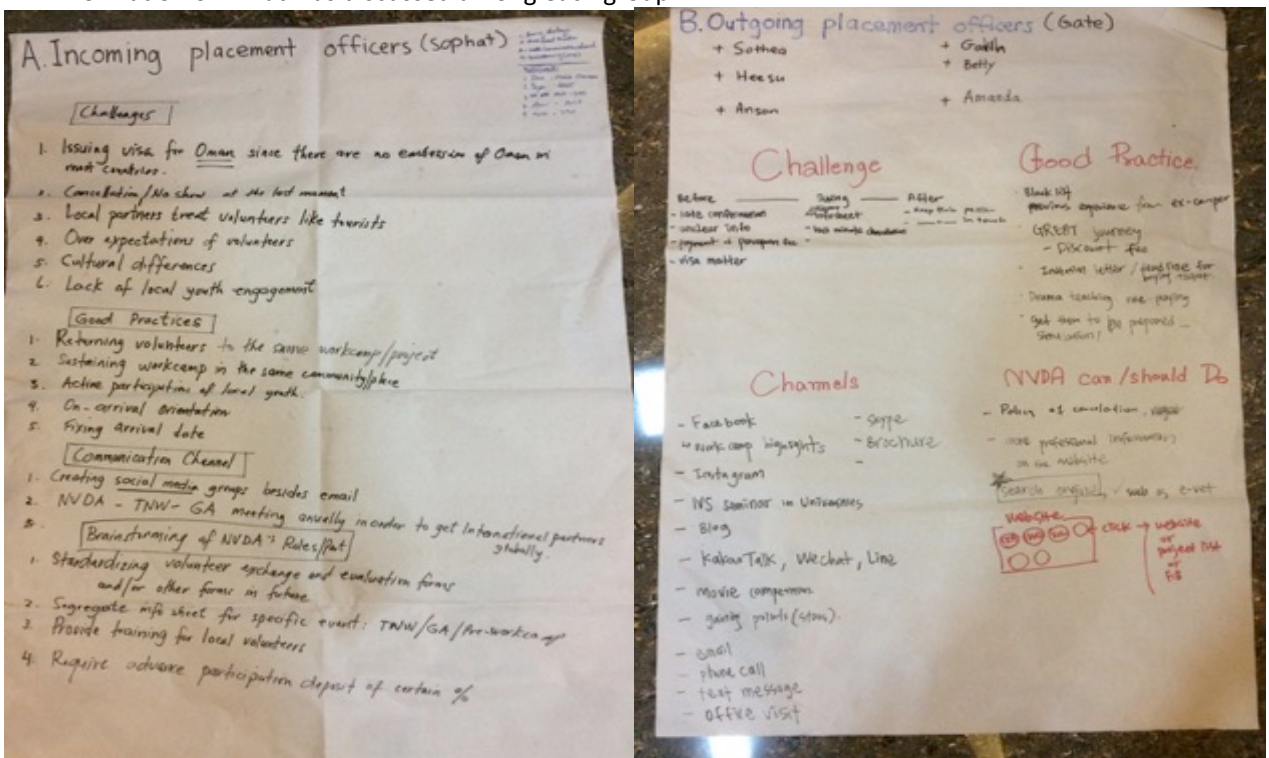 A. Incoming placement officers (Sophat)
Challenges
1. Issuing visa for Oman since there are no embassies of Oman in
most countries.
2. Cancellation/No show at the last moment
3. Local partners treat volunteers like tourists
4. Over expectations of volunteers
5. Cultural differences
6. Lack of local youth engagement
Good Practices
1. Returning volunteers to the same workcamp/project
2. Sustaining workcamp in the same community/place
3. Active participation of local youth.
4. On-arrival orientation
5. Fixing arrival date
Communication Channel
1. Creating social media groups besides email
2. NVDA - TNW - GA meeting annually in order to get International partners
globally.
3.
Brainstorming of NVDA's Roles/Part
1. Standardizing volunteer exchange and evaluation forms
and/or other forms in future
2. Segregate info sheet for specific event: TNW/GA/Pre-workcamp
3. Provide training for local volunteers
4. Require advance participation deposit of certain %
B. Outgoing placement officers (Gate)
+ Sothea
+ Heesu
+ Anson
+ Betty
+ Amanda
Challenge
Before
- late confirmation
- unclear info
- payment of
- visa matter
During
- infosheet
- last minute
After
- keep
in touch
Good Practice
Black list
previous experience from ex-camper
GREAT journey
- Discount fee
letter /
buying ticket
Drama teaching
get them to be prepared
Channels
- Facebook
work camp highlights
- Instagram
- IVS seminar in Universities
- Blog
- KakaoTalk, Wechat, Line
- movie competition
- points (stars).
- email
- phone call
- text message
- office visit
- Skype
- Brochure
-
NVDA can/should Do
- Policy of cancelation,
- more professional information
on the website
search
web as e-vet
website
click → website
or
project list
or
FB